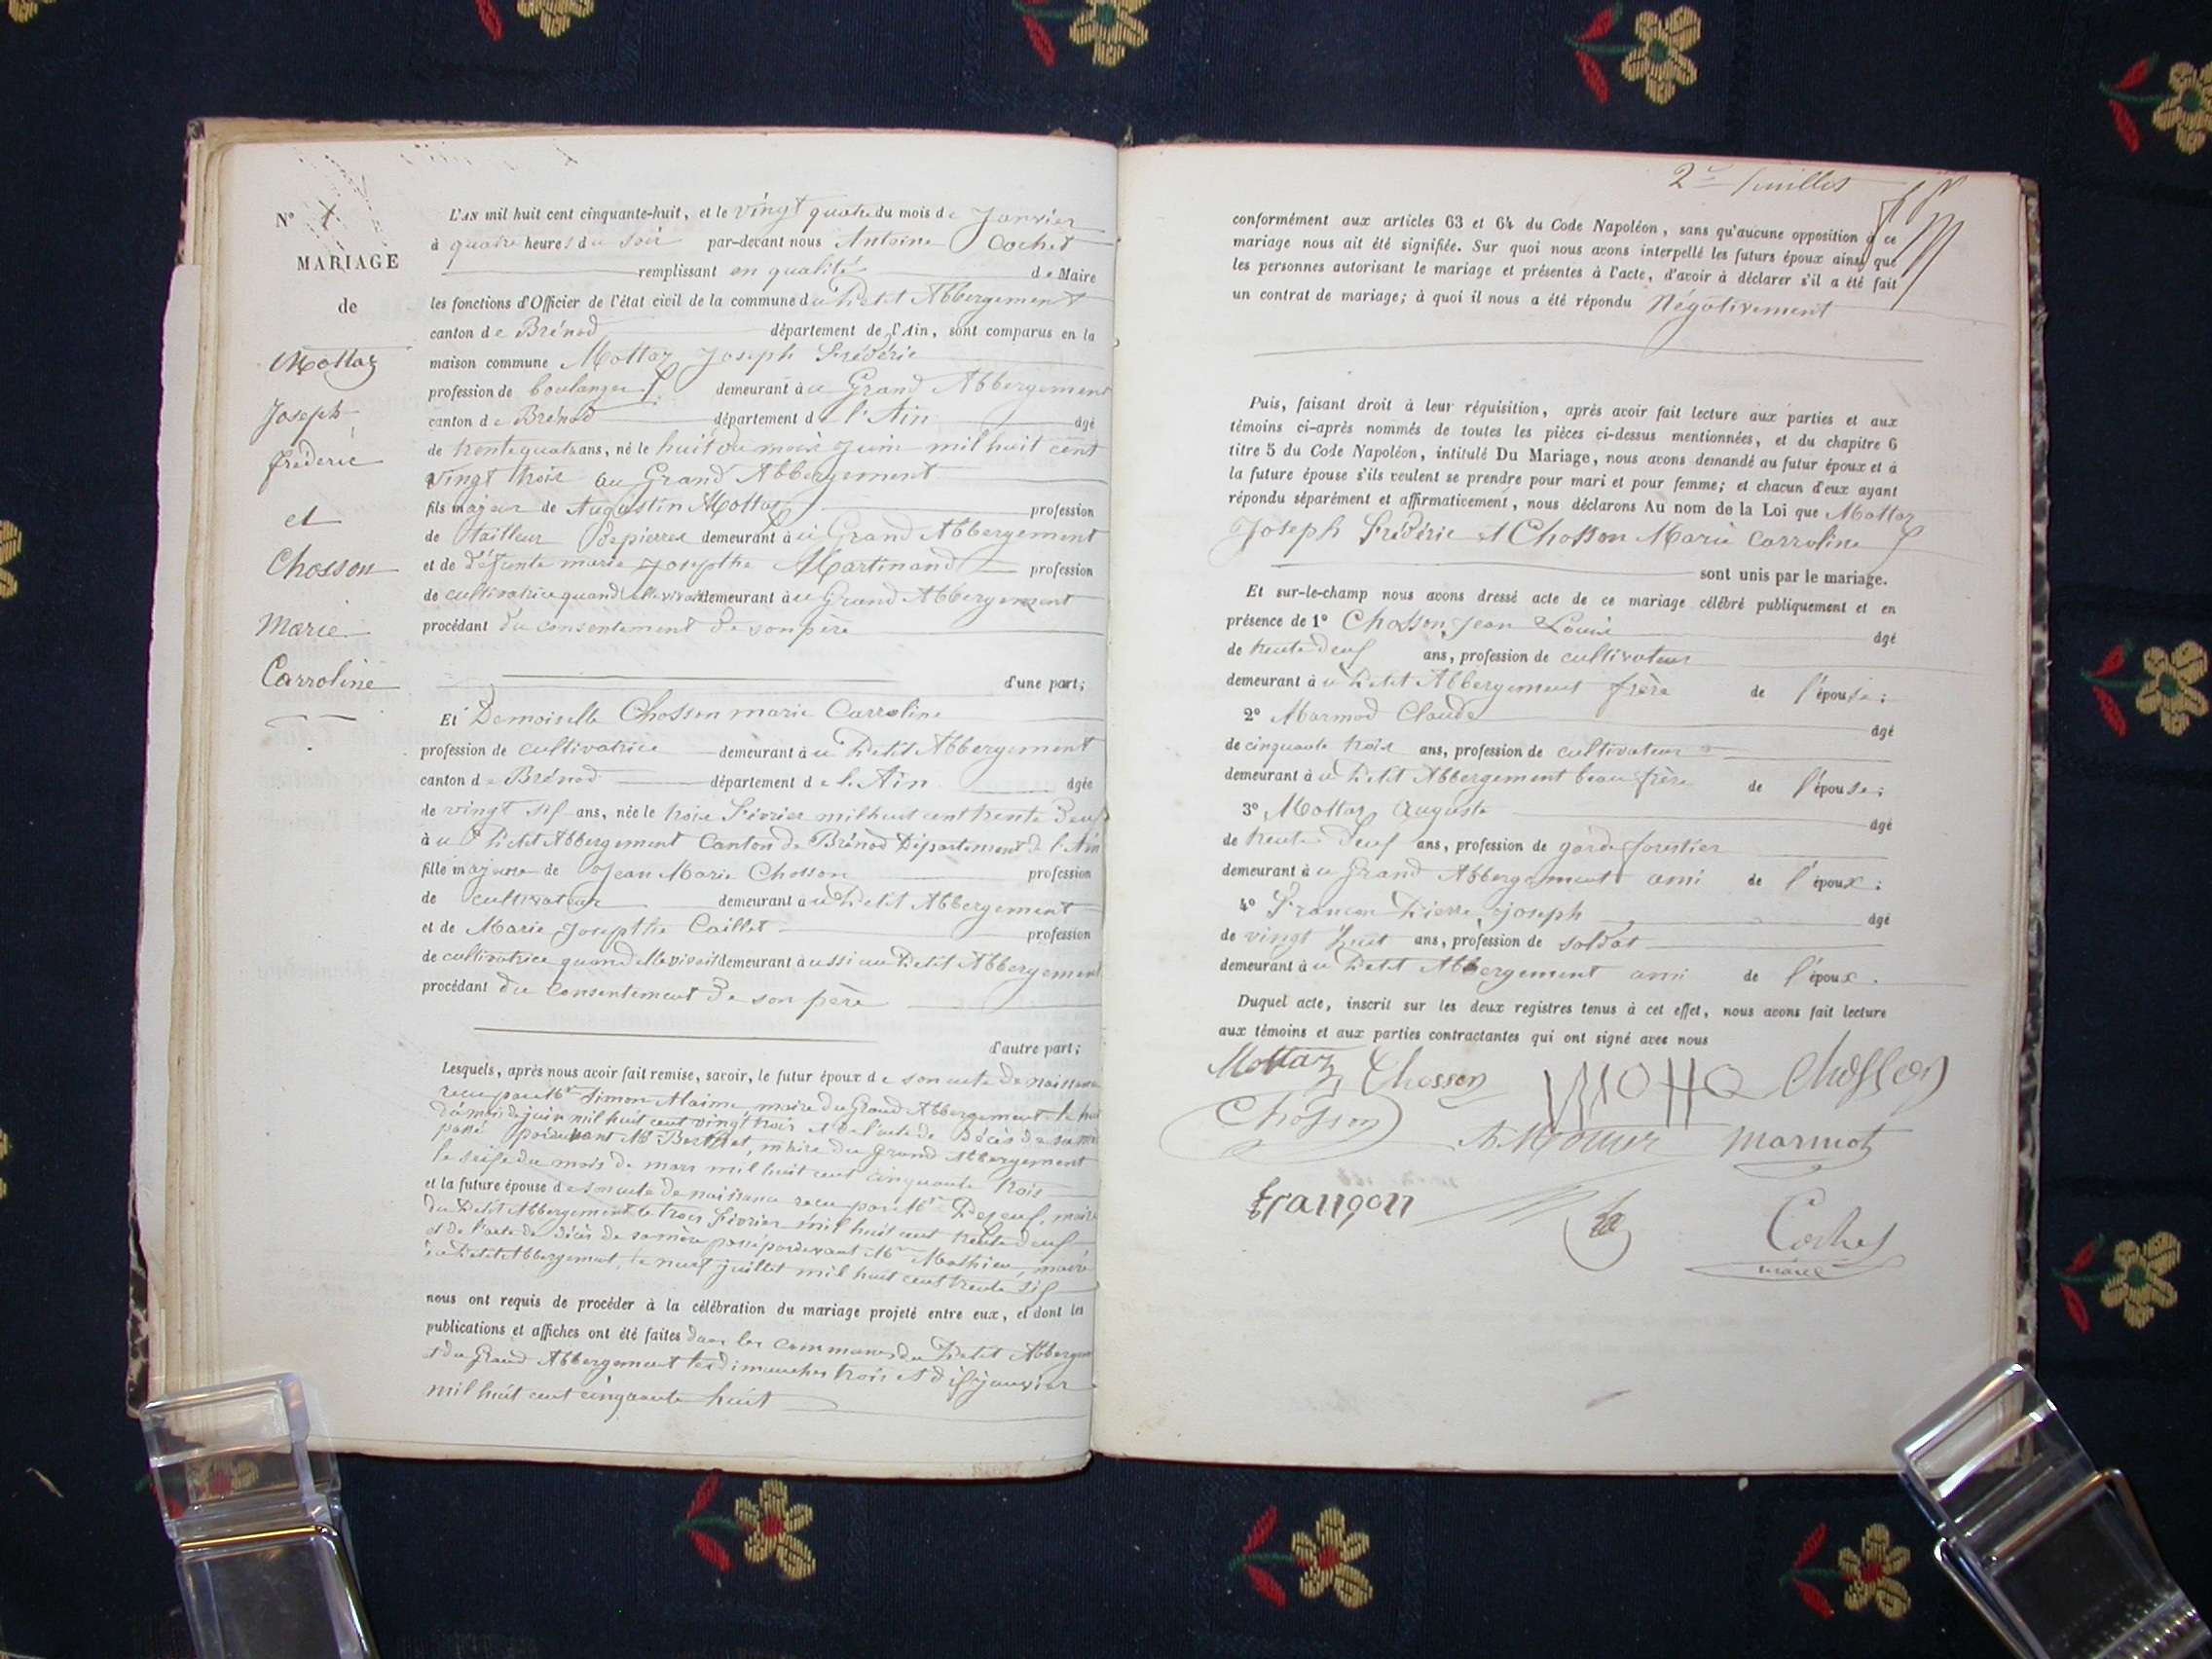 N° 1
MARIAGE
de
Mottaz
Joseph
frédéric
et
Chosson
Marie
Carroline
L'AN mil huit cent cinquante-huit, et le vingt quatre du mois de Janvier
à quatre heures du soir par-devant nous Antoine Cochet
remplissant en qualité de Maire
les fonctions d'Officier de l'état civil de la commune du Petit Abbergement
canton de Brénod département de l'Ain, sont comparus en la
maison commune Mottaz Joseph Frédéric
profession de boulanger demeurant à u Grand Abbergement
canton de Brénod département de l'Ain âgé
de trente quatre ans, né le huit du mois Juin mil huit cent
vingt trois au Grand Abbergement
fils majeur de Augustin Mottaz profession
de tailleur de pierres demeurant à u Grand Abbergement
et de défunte marie Josephte Martinand profession
de cultivatrice quand elle vivait demeurant à u Grand Abbergement
procédant du consentement de son père
d'une part;
Et Demoiselle Chosson marie Carroline
profession de cultivatrice demeurant à u Petit Abbergement
canton de Brénod département de l'Ain âgée
de vingt sif ans, née le trois Février mil huit cent trente deuf
à u Petit Abbergement Canton de Brénod Département de l'Ain
fille majeure de Jean Marie Chosson profession
de cultivateur demeurant à u Petit Abbergement
et de Marie Josephte Caillet profession
de cultivatrice quand elle vivait demeurant à ussi au Petit Abbergement
procédant du consentement de son père
d'autre part;
Lesquels, après nous avoir fait remise, savoir, le futur époux de son acte de naissance
reçu par Mr Simon Alaime, maire du Grand Abbergement le huit
du mois de juin mil huit cent vingt trois et de l'acte de décès de sa mère
passé pardevant Mr Berthet, maire du Grand Abbergement
le seife du mois de mars mil huit cent cinquante trois
et la future épouse de son acte de naissance reçu par Mr Dejeuf, maire
du Petit Abbergement le trois Février mil huit cent trente deuf
et de l'acte de décès de sa mère passé pardevant Mr Mathieu, maire
du Petit Abbergement, le neuf juillet mil huit cent trente sif
nous ont requis de procéder à la célébration du mariage projeté entre eux, et dont les
publications et affiches ont été faites dans les communes du Petit Abbergem
et du Grand Abbergement les dimanches trois et dif janvier
mil huit cent cinquante huit
2e feuillet
conformément aux articles 63 et 64 du Code Napoléon, sans qu'aucune opposition à ce
mariage nous ait été signifiée. Sur quoi nous avons interpellé les futurs époux ainsi que
les personnes autorisant le mariage et présentes à l'acte, d'avoir à déclarer s'il a été fait
un contrat de mariage; à quoi il nous a été répondu Négativement
Puis, faisant droit à leur réquisition, après avoir fait lecture aux parties et aux
témoins ci-après nommés de toutes les pièces ci-dessus mentionnées, et du chapitre 6
titre 5 du Code Napoléon, intitulé Du Mariage, nous avons demandé au futur époux et à
la future épouse s'ils veulent se prendre pour mari et pour femme; et chacun d'eux ayant
répondu séparément et affirmativement, nous déclarons Au nom de la Loi que Mottaz
Joseph Frédéric et Chosson Marie Carroline
sont unis par le mariage.
Et sur-le-champ nous avons dressé acte de ce mariage célébré publiquement et en
présence de 1° Chosson, Jean Louis âgé
de trente deuf ans, profession de cultivateur
demeurant à u Petit Abbergement frère de l'épouse;
2° Marmod Claude âgé
de cinquante trois ans, profession de cultivateur
demeurant à u Petit Abbergement beau frère de l'épouse;
3° Mottaz Auguste âgé
de trente deuf ans, profession de garde forestier
demeurant à u Grand Abbergement ami de l'époux;
4° Françon Pierre, joseph âgé
de vingt huit ans, profession de soldat
demeurant à u Petit Abbergement ami de l'époux.
Duquel acte, inscrit sur les deux registres tenus à cet effet, nous avons fait lecture
aux témoins et aux parties contractantes qui ont signé avec nous
Mottaz Chosson Chosson
Chosson marmot
françon
Cochet
maire